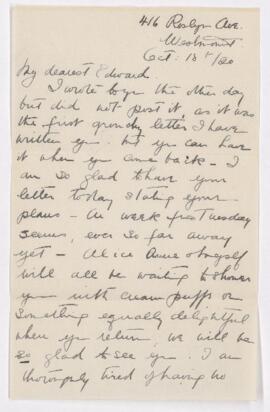 416 Roslyn Ave.
Westmount
Oct: 18th/20
My dearest Edward.
I wrote to you the other day
but did not post it, as it was
the first grouchy letter I have
written you. but you can have
it when you come back - I
am so glad to have your
letter today stating your
plans - A week from Tuesday
seems, ever so far away
yet - Alice Anne & myself
will all be waiting to shower
you with cream puffs or
something equally delightful
when you return, we will be
so glad to see you. I am
thoroughly tired of having no